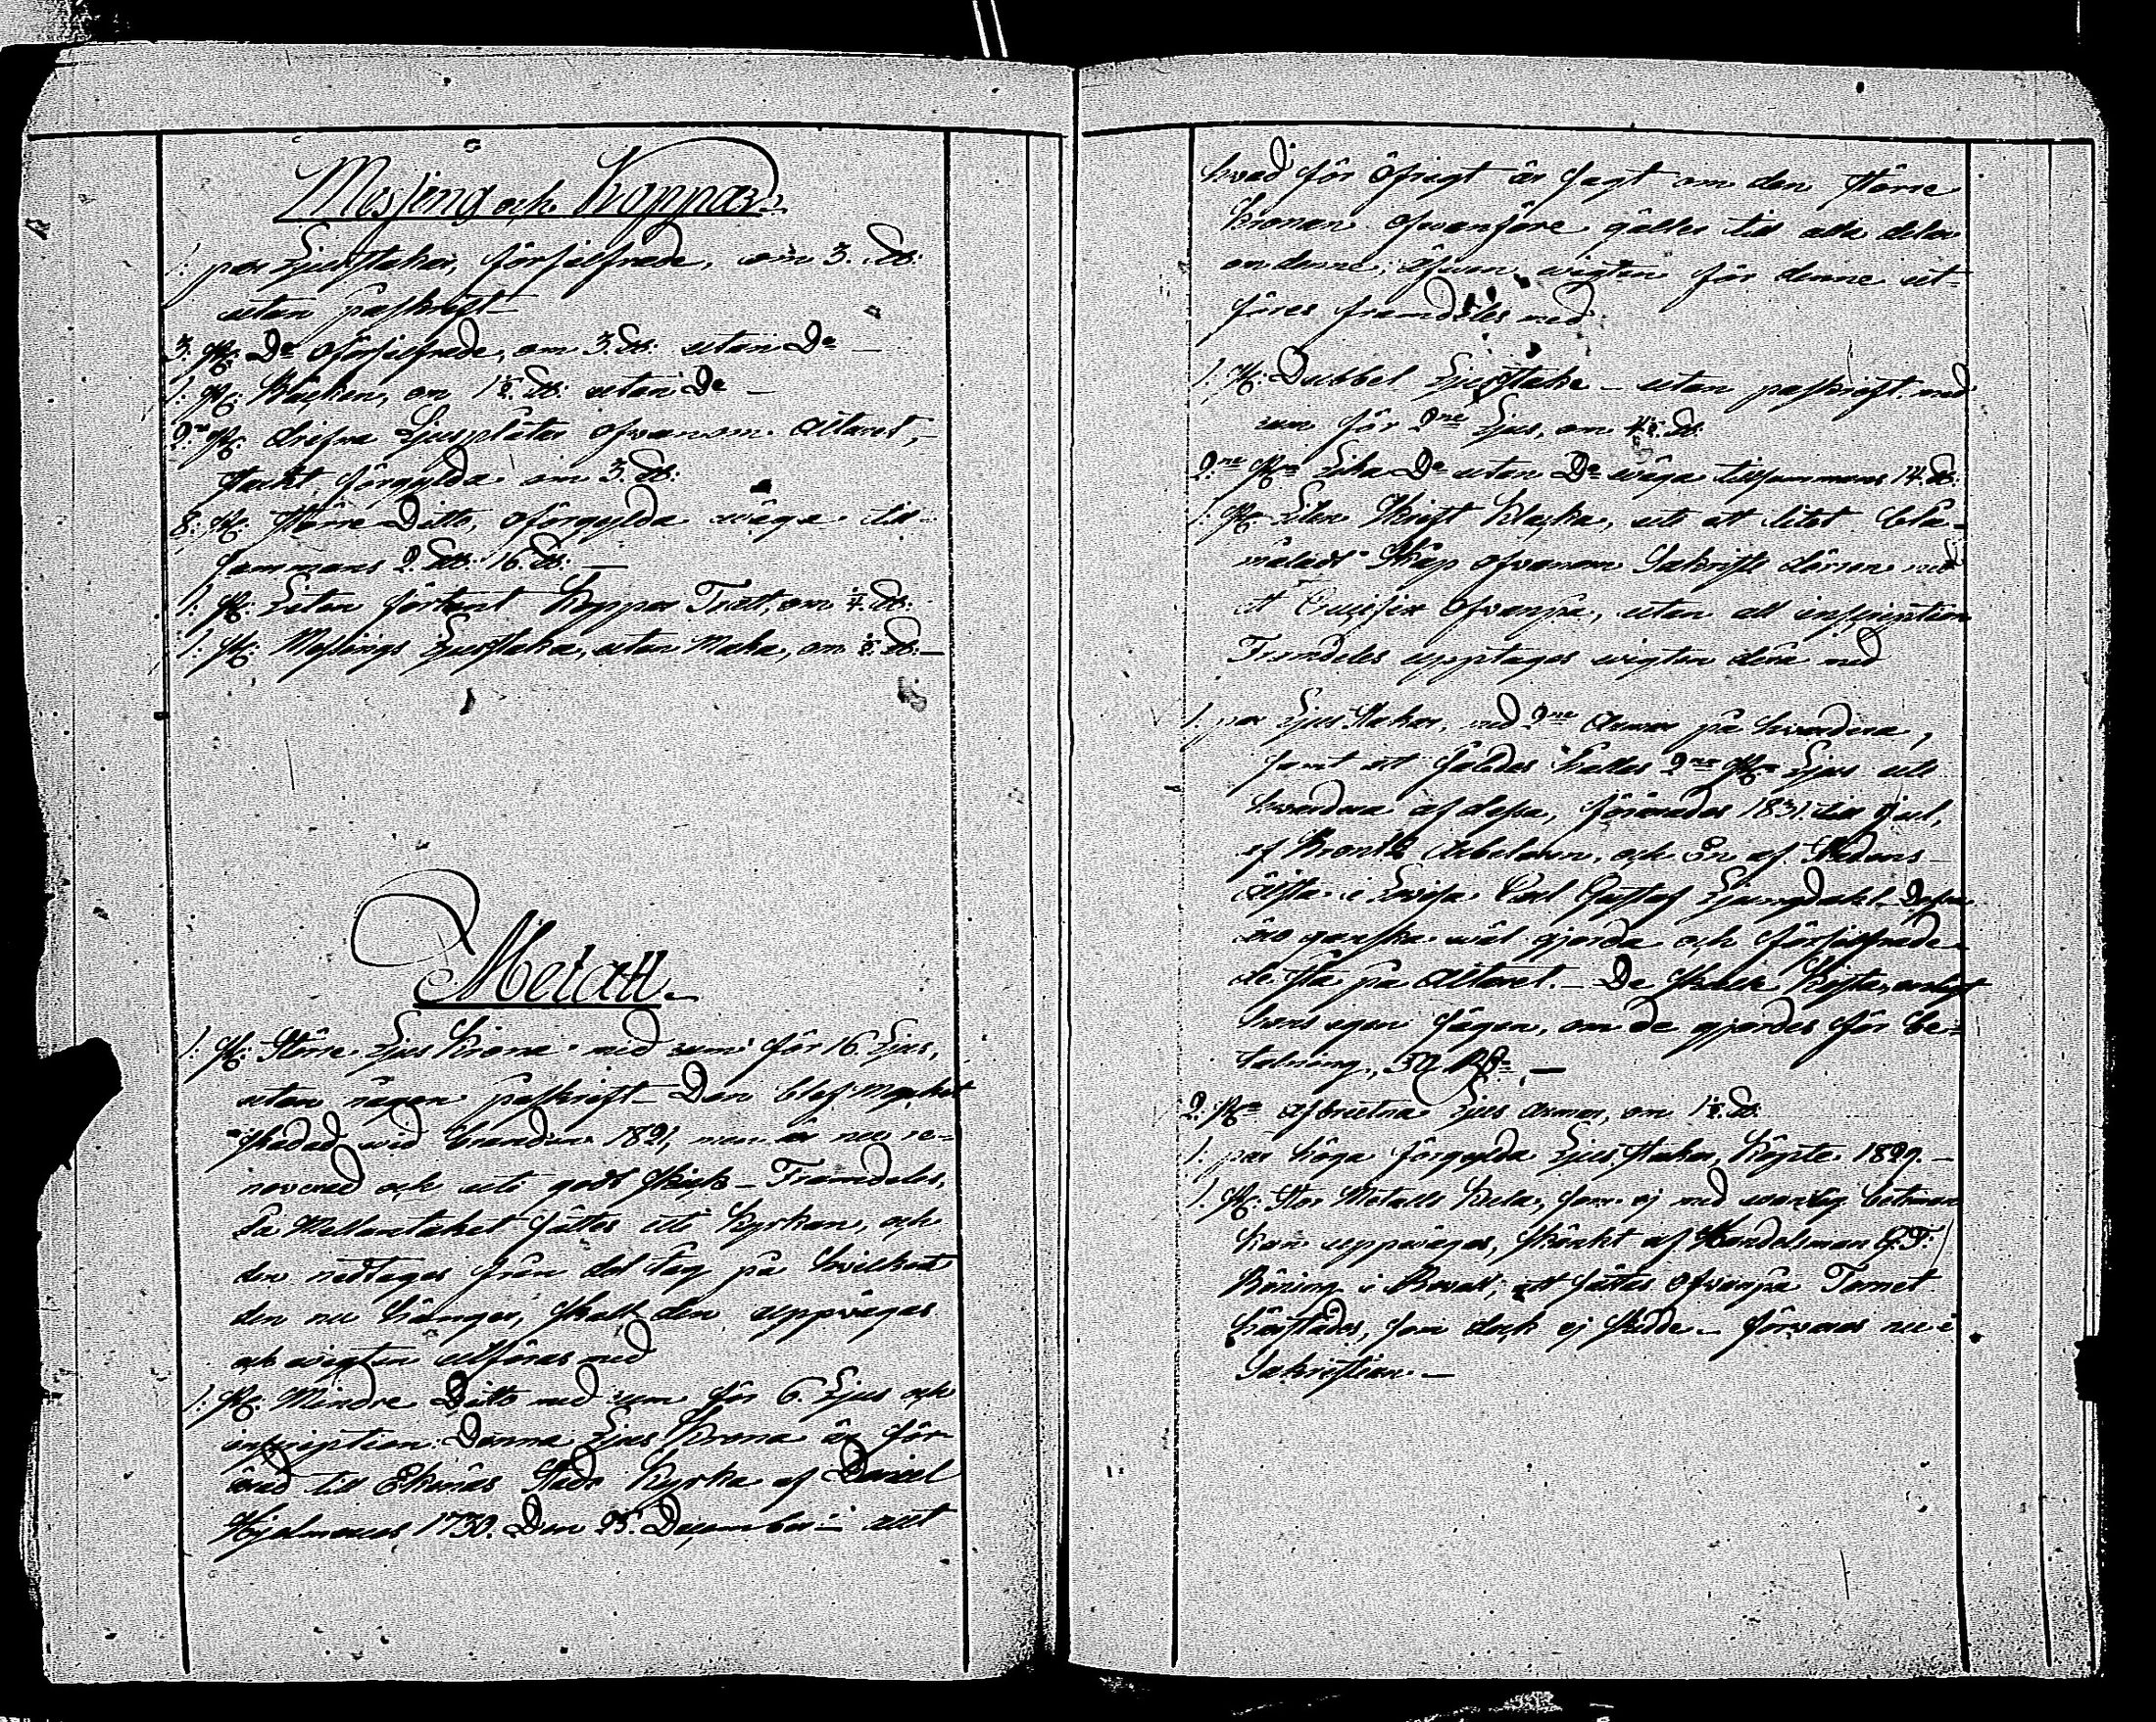 Messing och Koppar.
1. par Ljusstakar, försilfrade, om 3. ℔.
utan påskrift —
3. st. Do oförsilfrade, om 3. ℔. utan Do —
1. st. Bäcken, om 1½ ℔. utan Do —
2ne st. drifna Ljusplåtar ofvanom Altaret,
starkt förgylda om 3. ℔.
8. st. större Ditto, oförgylda wäga till-
sammans 2. 16. ℔. —
1. st. Liten förtent Koppar Tratt, om ¼ ℔.
1. st. Messings Ljusstaka, utan Maka, om ½ ℔. —
Metall.
1. st. Större Ljus Krona med rum för 16 Ljus,
utan någon påskrift — Den blef mycket
skadad wid branden 1821, men är nu re-
noverad och uti godt skick — Framdeles,
då Mellantaket sättes uti Kyrkan, och
den nedtages från det tåg på hvilket
den nu hänger, skall den uppwägas
och wigten utföras med
1. st. Mindre Ditto med rum för 6. Ljus och
inscription. Denna Ljus Krona är för-
ärad till Ekenäs Stads Kyrka af Daniel
Hjelmerus 1730. Den 25. December — allt
hvad för öfrigt är sagt om den större
Kronan ofvanföre gäller till alla delar
om denne; äfven wigten för denne ut-
föres framdeles med
1. st. Dubbel Ljusstake — utan påskrift med
rum för 2ne Ljus, om 4½ ℔.
2ne st. Lika Do utan Do wäga tillsammans 14. ℔.
1. st. Liten Skrift Klocka, uti ett litet blå-
måladt Skåp ofvanom Sakristie dörren med
ett Crucifix ofvanpå, utan all inscription
Framdeles upptages wigten dera med
1. par Ljus Stakar, med 2ne Armar på hvardera,
samt att således hålles 2ne st. Ljus uti
hvardera af dessa, förärades 1831 till Jul,
af Arbetaren, och En af Stadens
äldsta i Lovisa Carl Gustaf Ljungdahl. Dessa
äro ganska wäl gjorda och försilfrade
de stå på Altaret. — De skola kosta, enligt
hans egen sägen, om de gjordes för be-
talning, 50
2. st. afbrutna Ljus Armar, om 1½ ℔.
1. par höga förgylda Ljus Stakar, Köpte 1829. —
1. st. Stor Metalls Kula, som ej med wanlig betsman
kan uppwägas, skänkt af Handelsman G. F.
i att sättas ofvanpå Tornet
som dock ej skedde — förvaras nu i
Sakristian. —